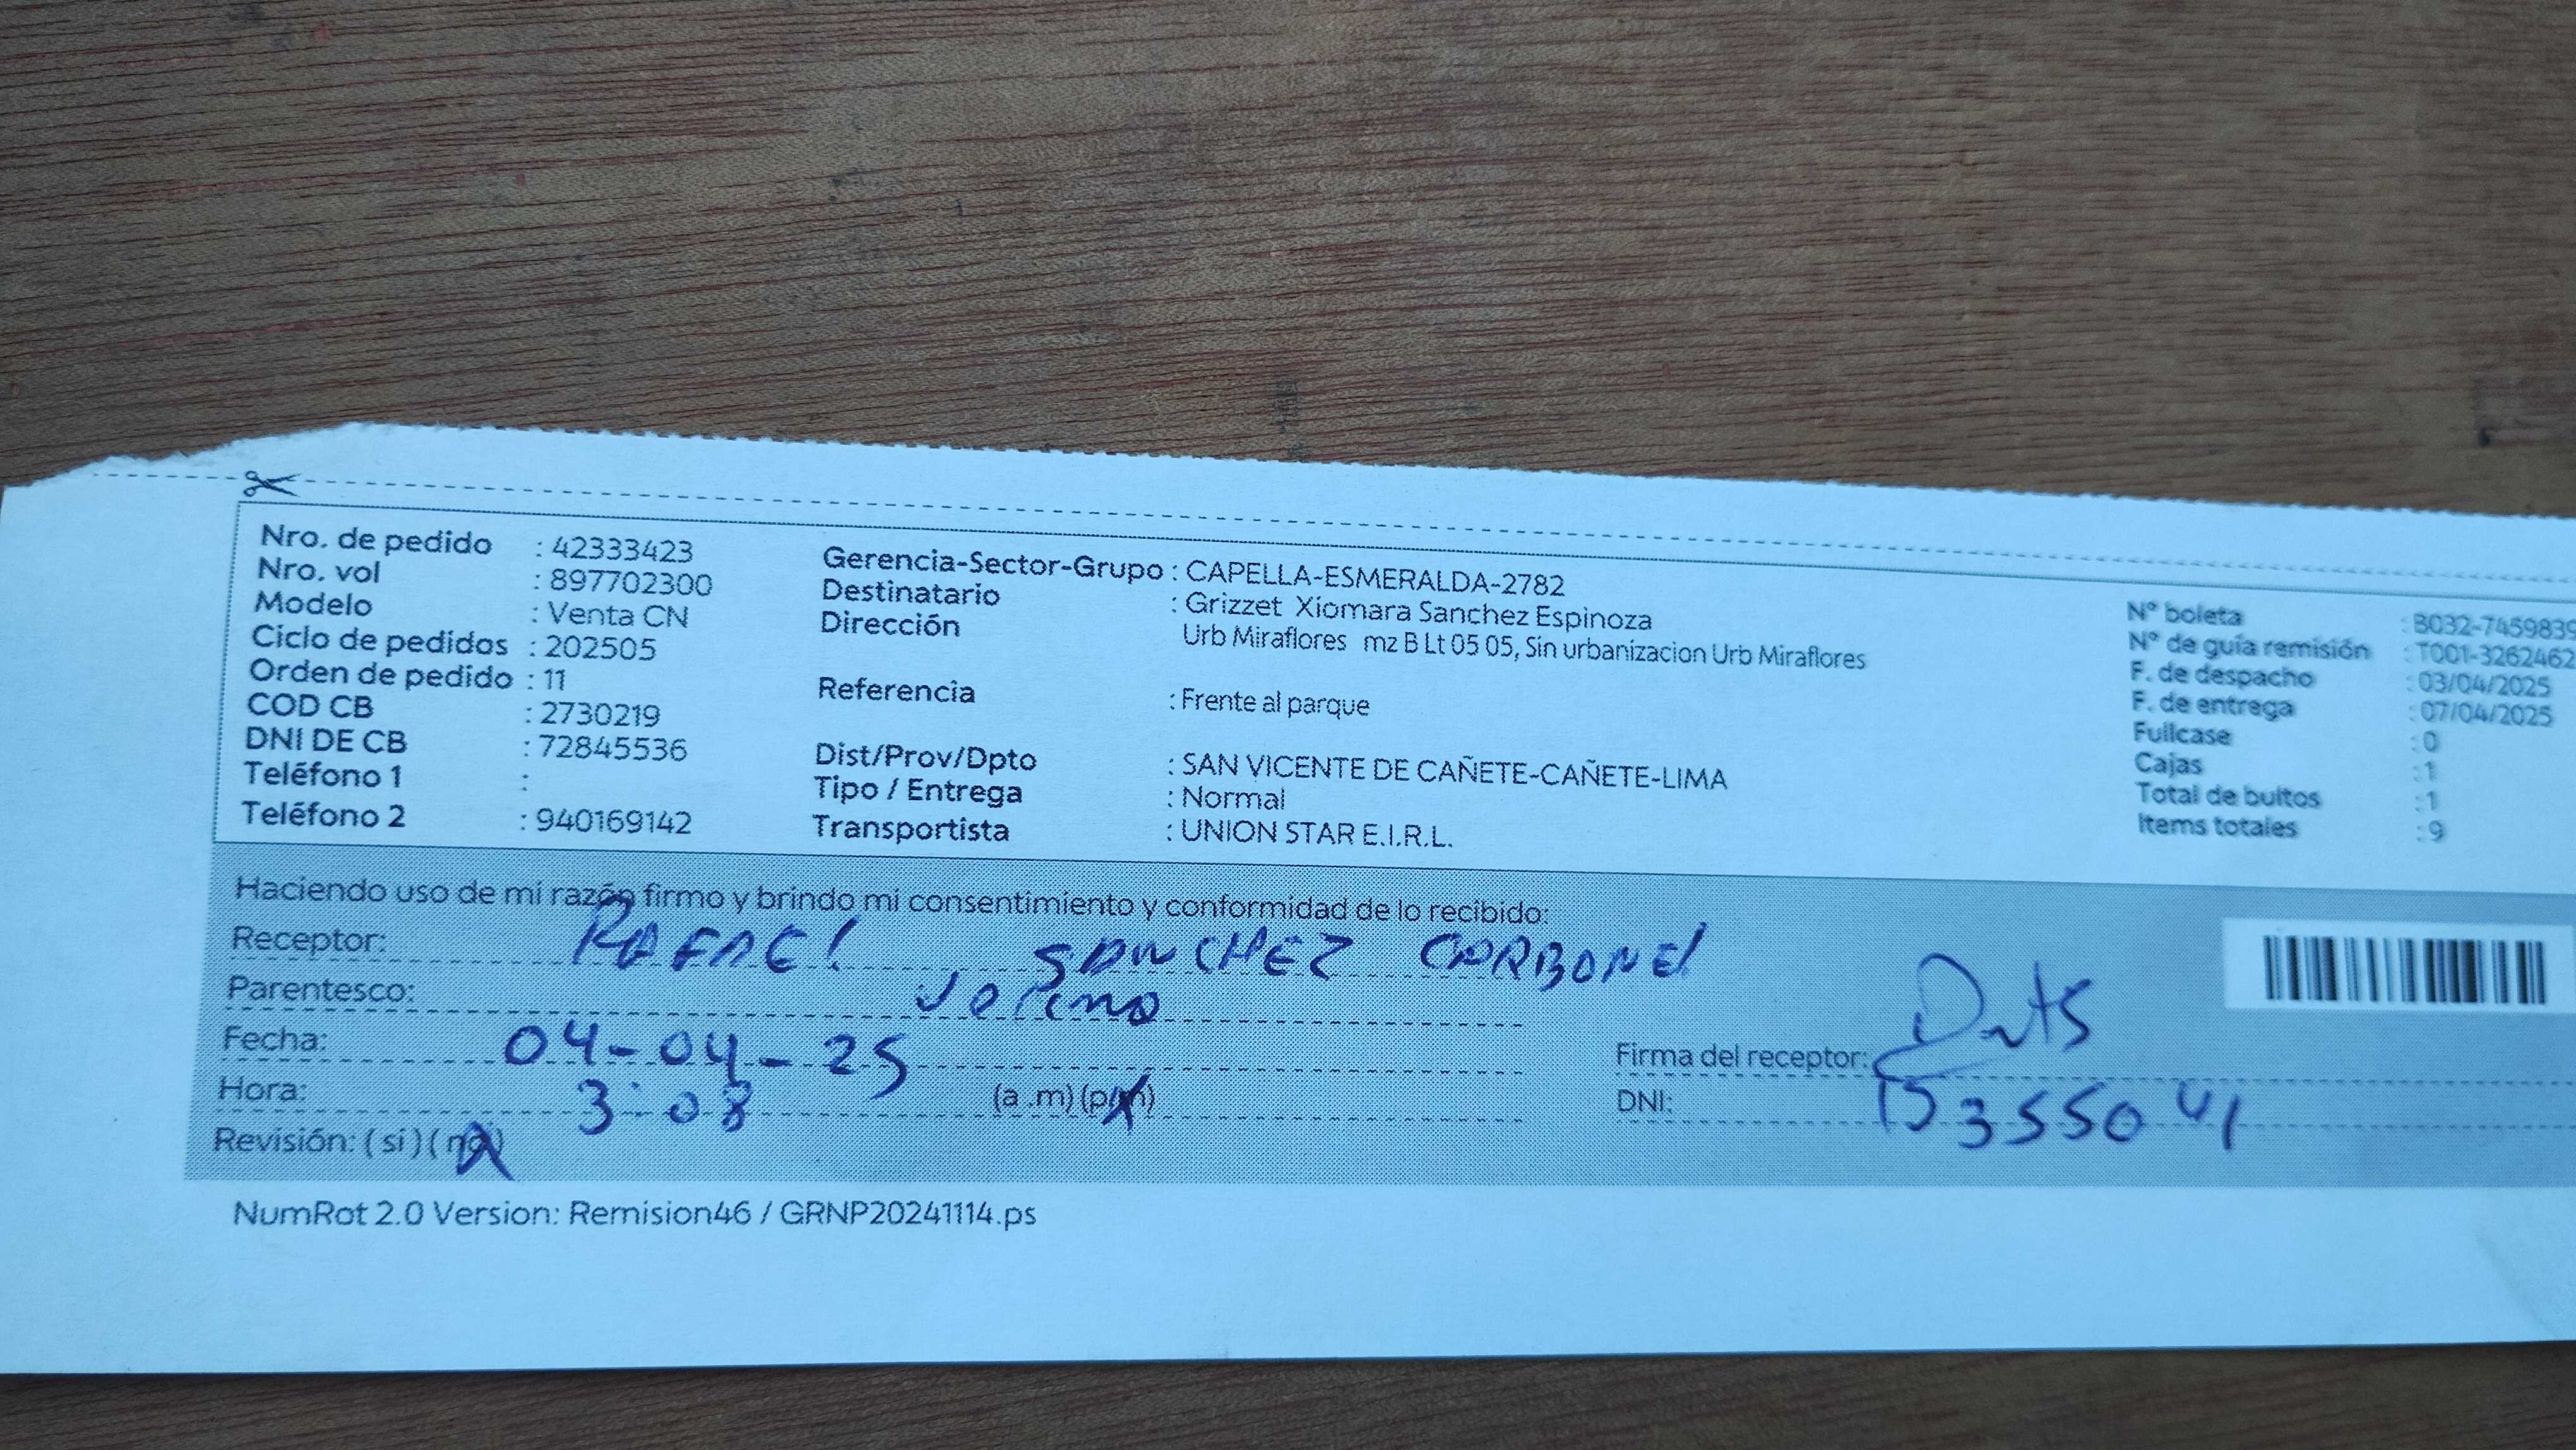 Nro. de pedido : 42333423
Nro. vol : 897702300
Modelo : Venta CN
Ciclo de pedidos : 202505
Orden de pedido : 11
COD CB : 2730219
DNI DE CB : 72845536
Teléfono 1 :
Teléfono 2 : 940169142
Gerencia-Sector-Grupo : CAPELLA-ESMERALDA-2782
Destinatario : Grizzet Xiomara Sanchez Espinoza
Dirección Urb Miraflores mz B Lt 05 05, Sin urbanizacion Urb Miraflores
Referencia : Frente al parque
Dist/Prov/Dpto : SAN VICENTE DE CAÑETE-CAÑETE-LIMA
Tipo / Entrega : Normal
Transportista : UNION STAR E.I.R.L.
N° boleta : B032-7459839
N° de guía remisión : T001-3262462
F. de despacho : 03/04/2025
F. de entrega : 07/04/2025
Fullcase : 0
Cajas : 1
Total de bultos : 1
Items totales : 9
Haciendo uso de mi razón firmo y brindo mi consentimiento y conformidad de lo recibido:
Receptor: RAFAEl SANCHEZ CARBONEl
Parentesco:
Fecha: 04-04-25
Hora: 3:08 (a .m) (p.m)
Revisión: ( si ) ( no )
Firma del receptor:
DNI: 15355041
NumRot 2.0 Version: Remision46 / GRNP20241114.ps